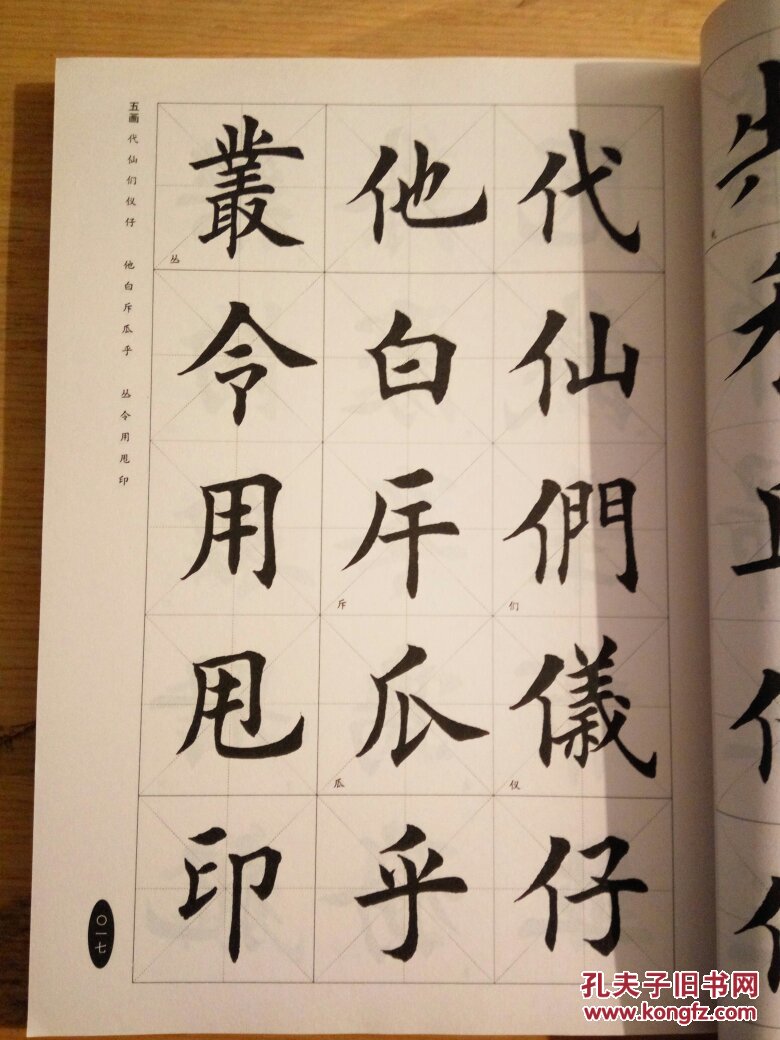 五画 代仙们仪仔 他白斥瓜乎 丛令用甩印
代仙們儀仔
们
仪
他白斥瓜乎
斥
瓜
叢令用甩印
丛
〇一七
孔夫子旧书网
www.kongfz.com